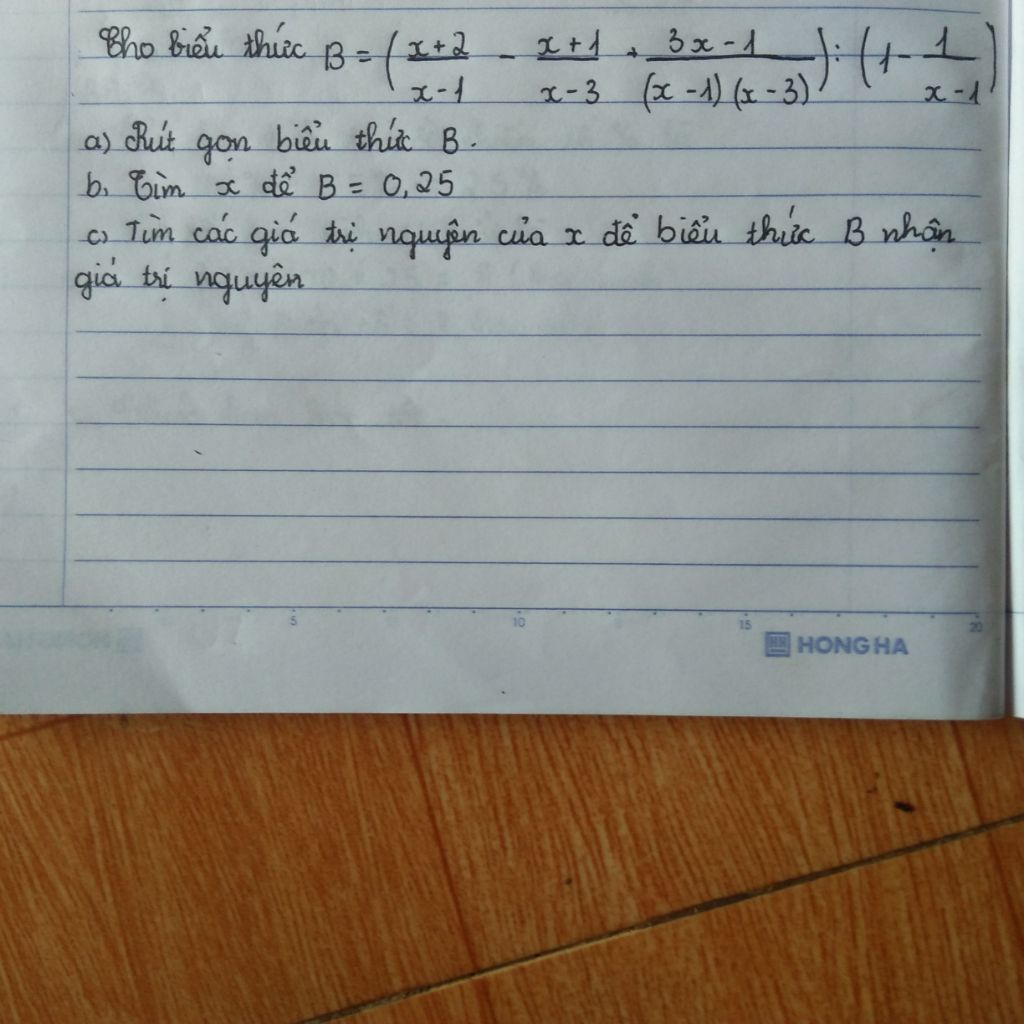 Cho biểu thức B = ( x+2 / x-1 - x+1 / x-3 + 3x-1 / (x-1)(x-3) ) : ( 1 - 1 / x-1 )
a) Rút gọn biểu thức B.
b, Tìm x để B = 0,25
c) Tìm các giá trị nguyên của x để biểu thức B nhận
giá trị nguyên
5 10 15 20
HONG HA